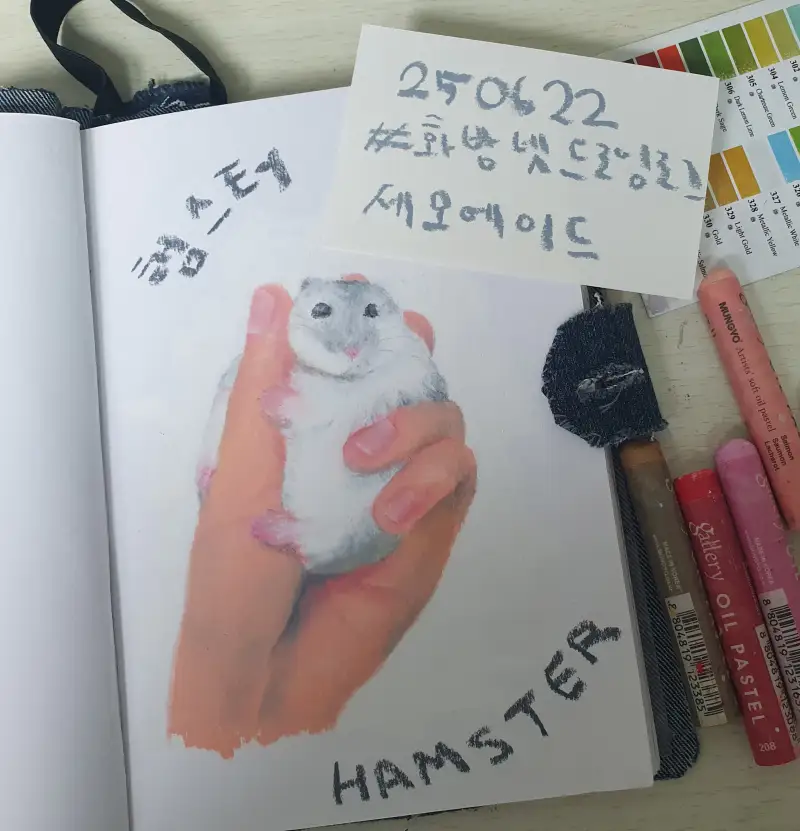 250622
#화방넷드로잉런
세모에이드
햄스터
HAMSTER
304
Lemon Green
305
306
Dark Lemon Lime
327
Metallic White
328
Metallic Yellow
329
Light Gold
330
Gold
MUNGYO Artists' soft oil pastel
Salmon
Saumon
Lachsrot
gallery OIL PASTEL
208
MADE IN KOREA
8 804819 123385